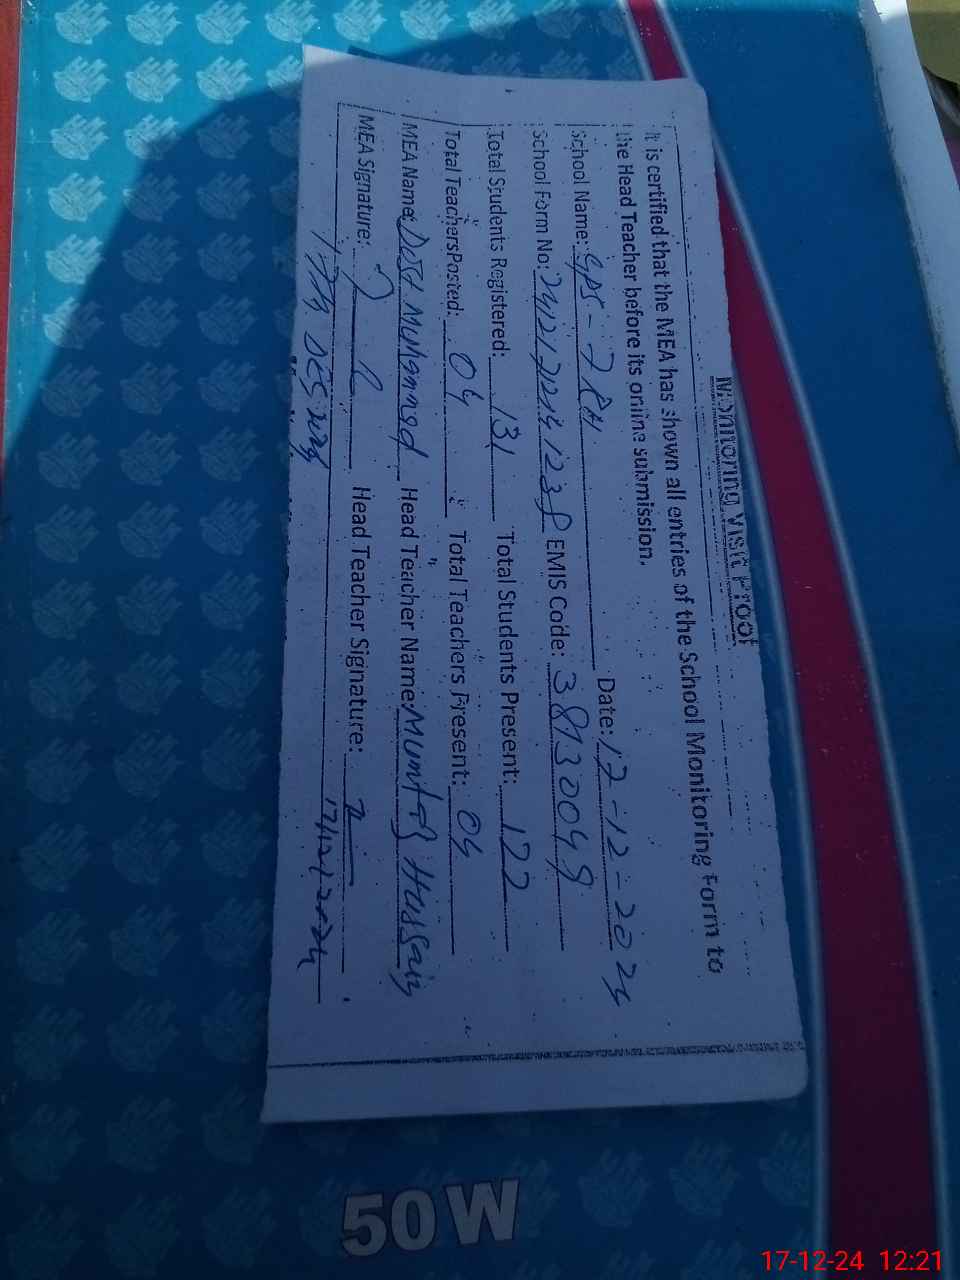 Monitoring Visit Proof
It is certified that the MEA has shown all entries of the School Monitoring Form to
the Head Teacher before its online submission.
School Name: GPS - 7 RH Date: 17-12-2024
School Form No: EMIS Code: 38930049
Total Students Registered: 131 Total Students Present: 122
Total Teachers Posted: 04 Total Teachers Present: 04
MEA Name: Dost Muhammad Head Teacher Name: Mumtaz Hussain
MEA Signature: Head Teacher Signature:
17/12/2024
50W
17-12-24 12:21